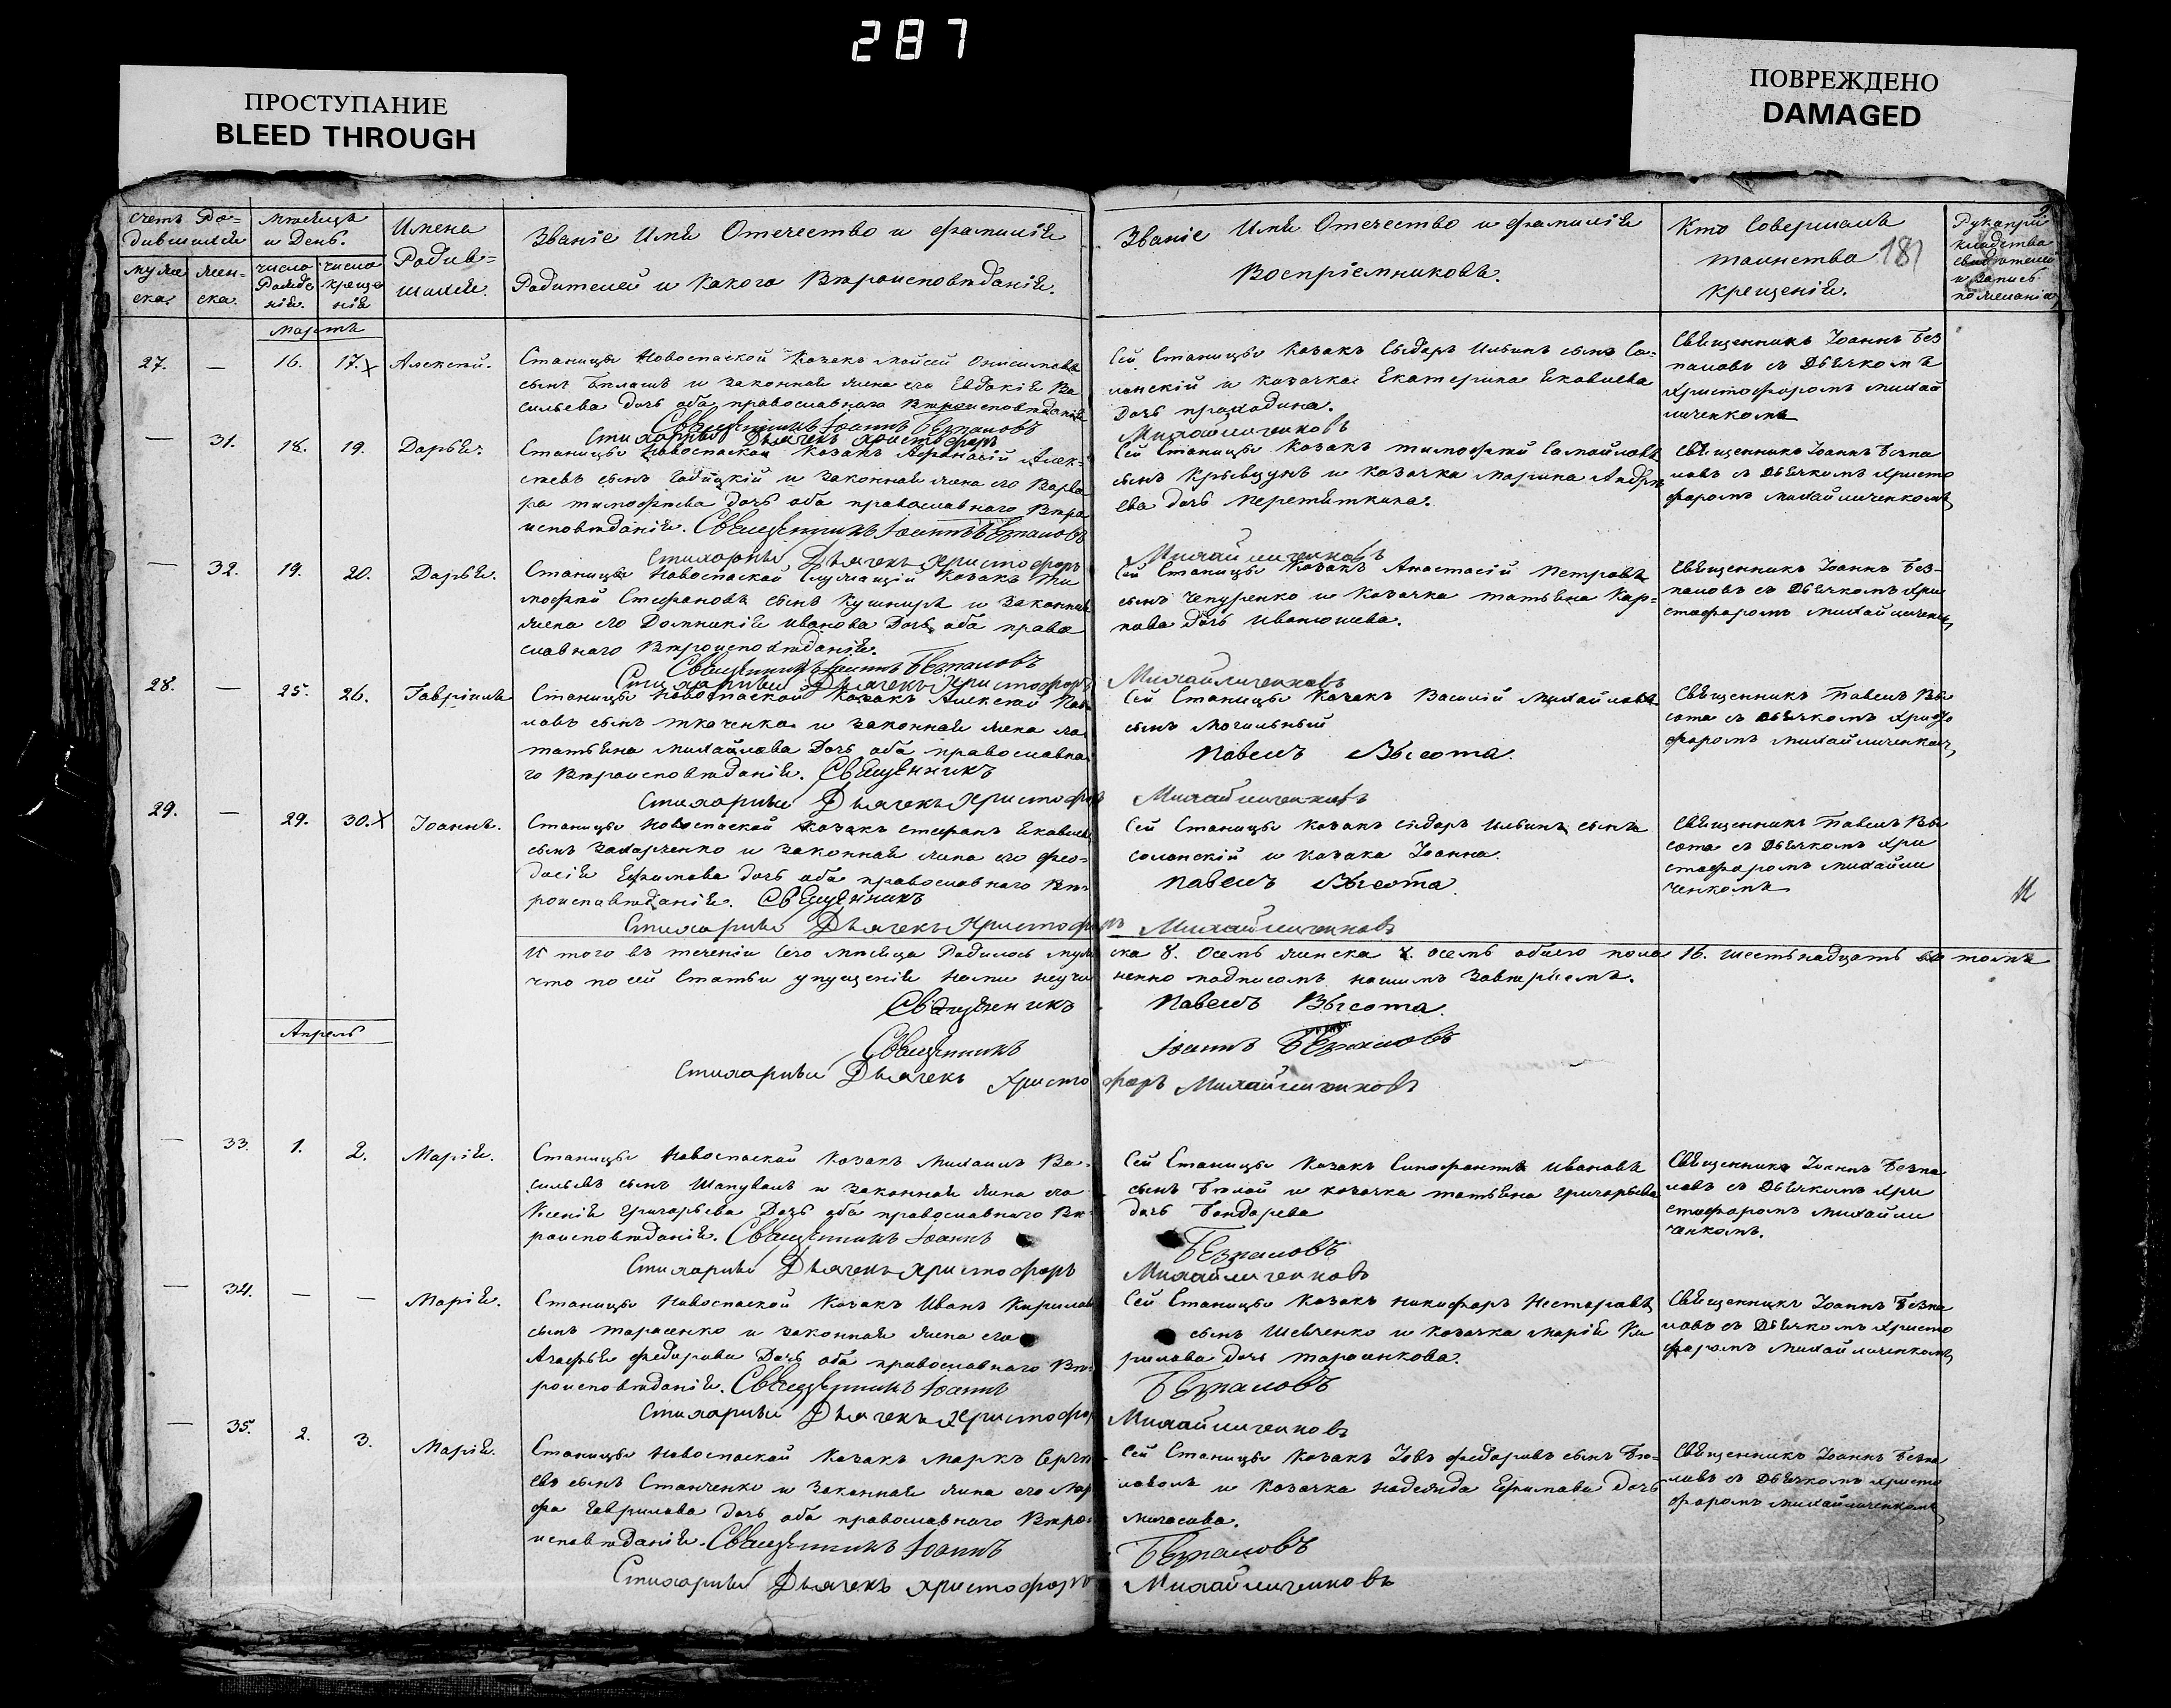 287
ПРОСТУПАНИЕ
BLEED THROUGH
ПОВРЕЖДЕНО
DAMAGED
Счетъ Ро=
дившихся
муже
ска.
жен=
ска.
Мѣсяцъ
и День.
число
Рожде
нія.
число
креще
нія
Имена
Родив=
шихся.
Званіе Имя Отечество и фамилія
Родителей и какого Вѣроисповѣданія.
Званіе Имя Отечество и фамилія
Воспріемниковъ.
Кто Совершалъ
таинство
крещенія.
181
Рукопри
кладство
свидѣтелей
и запись
по желанію
Мартъ
27. — 16. 17. Алексѣй.
Станицы Новоспаской Козакъ Мойсей Онисимовъ
сынъ Бѣлашъ и законная жена его Евдокія Ва
сильева дочь оба православнаго Вѣроисповѣданія
Священникъ Іоаннъ Безпаловъ
Стихарный Дьячекъ Христофоръ
Сей Станицы Козакъ Сыдоръ Ильинъ сынъ Со=
ланскій и козачка Екатерина Яковлева
дочь
Михайличенковъ
Священникъ Іоаннъ Без
паловъ съ Дьячкомъ
Христофоромъ Михай
личенкомъ
— 31. 18. 19. Дарья.
Станицы Новоспаской Козакъ Афанасій Алек=
сѣевъ сынъ Гадяцкій и законная жена его Варва
ра Тимофѣева дочь оба православнаго Вѣро
исповѣданія. Священникъ Іоаннъ Безпаловъ
Стихарный Дьячекъ Христофоръ
Сей Станицы Козакъ Тимофѣй Самойловъ
сынъ Крывцунъ и козачка Марина Андрѣ
ева дочь Перетяткина.
Михайличенковъ
Священникъ Іоаннъ Безпа
ловъ съ Дьячкомъ Христо
форомъ Михайличенкомъ
— 32. 19. 20. Дарья.
Станицы Новоспаской служащій Козакъ Ти
мофѣй Стефановъ сынъ Кушниръ и законная
жена его Домникія Иванова дочь оба право
славнаго Вѣроисповѣданія.
Священникъ Іоаннъ Безпаловъ
Стихарный Дьячекъ Христофоръ
Сей Станицы Козакъ Анастасій Петровъ
сынъ Чепуренко и козачка Татьяна Кар=
пова дочь Иванюшева.
Михайличенковъ
Священникъ Іоаннъ Без=
паловъ съ Дьячкомъ Хри
стофоромъ Михайличенк
28. — 25. 26. Гавріилъ
Станицы Новоспаской Козакъ Алексѣй Пав
ловъ сынъ Ткаченко и законная жена его
Татьяна Михайлова дочь оба православна
го Вѣроисповѣданія. Священникъ
Стихарный Дьячекъ Христофоръ
Сей Станицы Козакъ Василій Михайловъ
сынъ Могильный
Павелъ Высота.
Михайличенковъ
Священникъ Павелъ Вы
сота съ Дьячкомъ Христо
форомъ Михайличенком
29. — 29. 30. Іоаннъ.
Станицы Новоспаской Козакъ Стефанъ Яковлевъ
сынъ Захарченко и законная жена его Фео=
досія Ефимова дочь оба православнаго Вѣ=
роисповѣданія. Священникъ
Стихарный Дьячекъ Христофоръ
Сей Станицы Козакъ Сидоръ Ильинъ сынъ
Соланскій и козака Іоанна.
Павелъ Высота
Михайличенковъ
Священникъ Павелъ Вы
сота съ Дьячкомъ Хри
стофоромъ Михайли
ченкомъ
И того въ теченіи сего Мѣсяца Родилось муже ска 8. осемъ женска 8. осемъ обоего пола 16. шестьнадцать въ томъ
что по сей Статьи упущенія нами неучи ненно подписомъ нашимъ Завѣряемъ.
Священикъ Павелъ Высота.
Священникъ Іоаннъ Безпаловъ
Стихарный Дьячекъ Христофоръ Михайличенковъ
Апрель
— 33. 1. 2. Марія.
Станицы Новоспаской Козакъ Михаилъ Ва=
сильевъ сынъ Шаповалъ и законная жена его
Ксенія Григорьева Дочь оба православнаго Вѣ
роисповѣданія. Священникъ Іоаннъ
Стихарный Дьячекъ Христофоръ
Сей Станицы Козакъ Ивановъ
сынъ Бѣлой и козачка Татьяна Григорьева
дочь Бондарева
Безпаловъ
Михайличенковъ
Священникъ Іоаннъ Безпа
ловъ съ Дьячкомъ Хри
стофоромъ Михайли
ченкомъ.
— 34. — — Марія.
Станицы Новоспаской Козакъ Иванъ Кириловъ
сынъ Тарасенко и законная жена его
Агафья Федорова Дочь оба православнаго Вѣ
роисповѣданія. Священникъ Іоаннъ
Стихарный Дьячекъ Христофоръ
Сей Станицы Козакъ Никифоръ Нестеровъ
сынъ Шевченко и козачка Марія Ки
рилова дочь Тарасенкова.
Безпаловъ
Михайличенковъ
Священникъ Іоаннъ Безпа
ловъ съ Дьячкомъ Христо
форомъ Михайличенкомъ
— 35. 2. 3. Марія.
Станицы Новоспаской Козакъ Марко Сергѣ
евъ сынъ Станченко и законная жена его Мар
фа Гаврилова дочь оба православнаго Вѣро
исповѣданія. Священникъ Іоаннъ
Стихарный Дьячекъ Христофоръ
Сей Станицы Козакъ Іовъ Федоровъ сынъ
и козачка Надежда Ефимова дочь
Безпаловъ
Михайличенковъ
Священникъ Іоаннъ Безпа
ловъ съ Дьячкомъ Христо
форомъ Михайличенкомъ